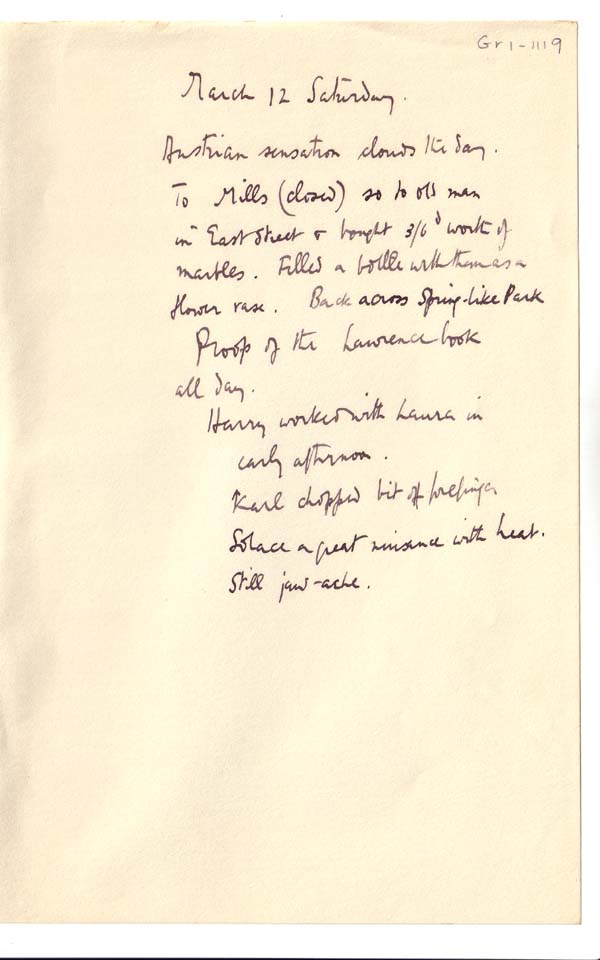 Gr1-1119
March 12 Saturday.
Austrian sensation clouds the day.
To Mills (closed) so to old man
in East Street & bought 3/6d worth of
marbles. Filled a bottle with them as a
flower vase. Back across Spring-like Park
Proofs of the Lawrence book
all day.
Harry worked with Laura in
early afternoon.
Karl chopped bit off forefinger
Solace a great nuisance with heat.
Still jaw-ache.